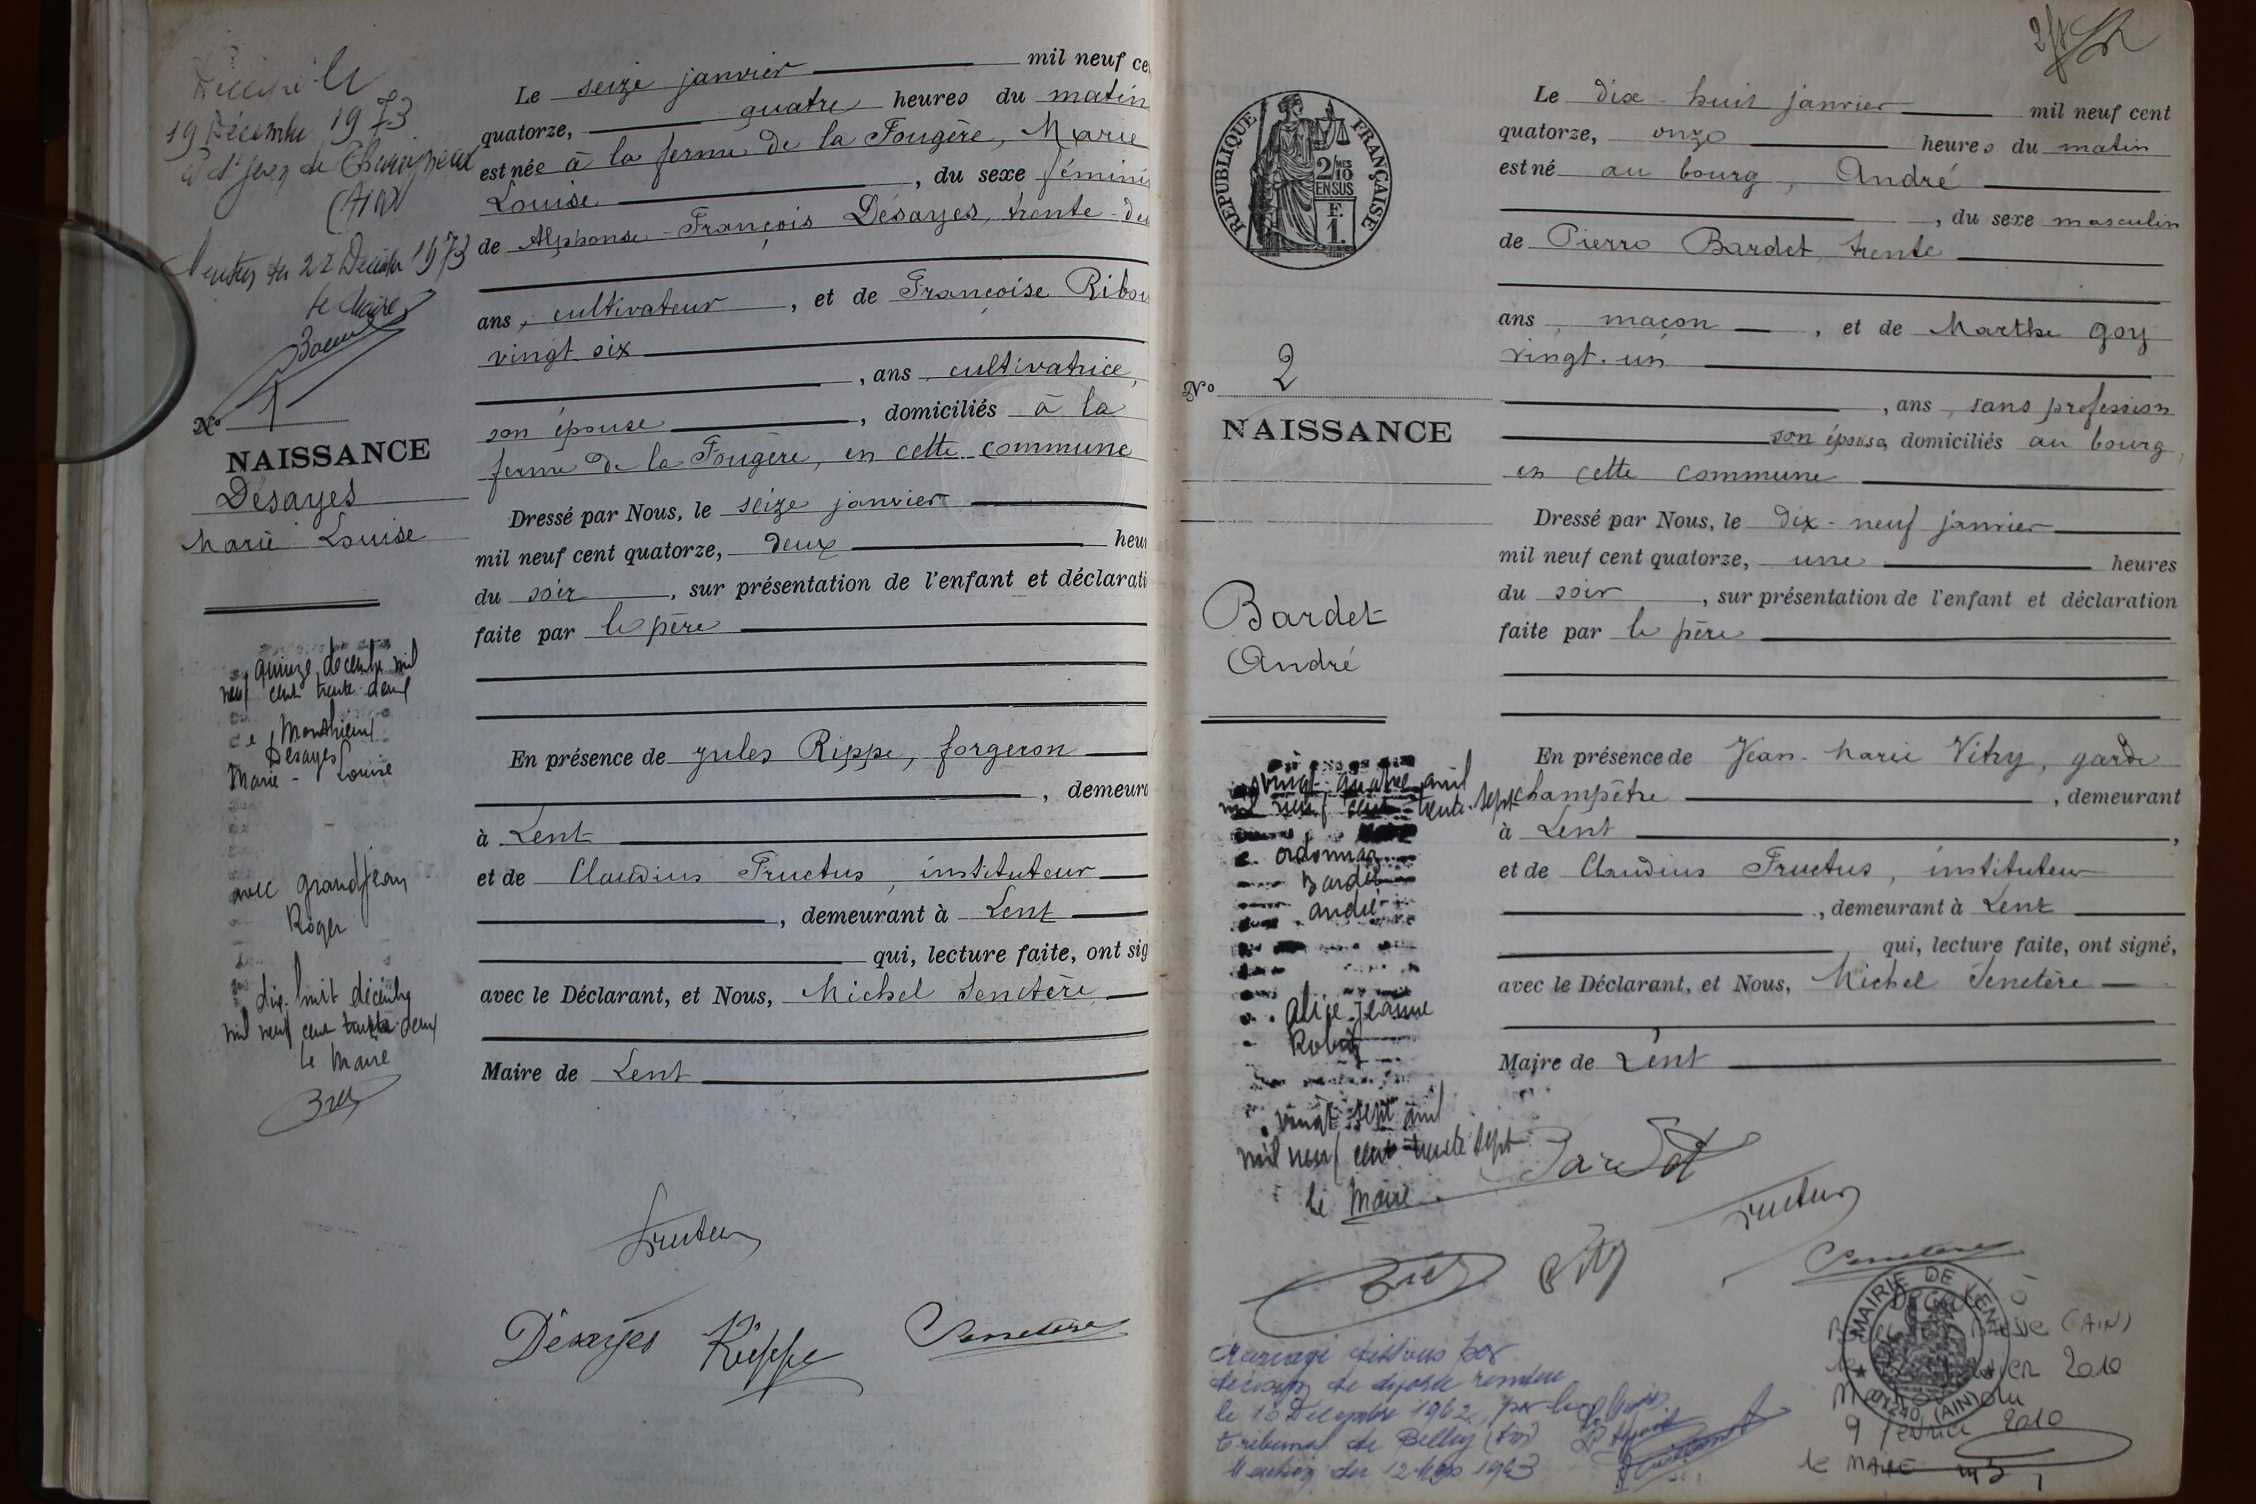 19 Décembre 1973
(Ain)
22 Décembre 1973
le Maire
No 1
NAISSANCE
Désayes
Marie Louise
quinze décembre mil
neuf cent trente deux
Monthieux
Désayes
Marie - Louise
avec Grandjean
Roger
dix-huit décembre
mil neuf cent trente deux
le Maire
Le seize janvier mil neuf ce
quatorze, quatre heures du matin
est née à la ferme de la Fougère, Marie
Louise , du sexe fémini
de Alphonse - François Désayes, trente-de
ans, cultivateur , et de Françoise Ribou
vingt six
, ans cultivatrice,
son épouse , domiciliés à la
ferme de la Fougère, en cette commune
Dressé par Nous, le seize janvier
mil neuf cent quatorze, deux heur
du soir , sur présentation de l'enfant et déclarati
faite par le père
En présence de Jules Rippe, forgeron
, demeura
à Lent
et de Claudius Fructus, instituteur
, demeurant à Lent
qui, lecture faite, ont sig
avec le Déclarant, et Nous, Michel Senetère
Maire de Lent
Fructus
Désayes Rippe Senetère
RÉPUBLIQUE FRANÇAISE
2/10
EN SUS
F.
1.
No 2
NAISSANCE
Bardet
André
vingt quatre avril
mil neuf cent trente-sept
Ordonnaz
Bardet
André
Alice-Jeanne
vingt sept avril
mil neuf cent trente sept
le Maire
Le dix-huit janvier mil neuf cent
quatorze, onze heures du matin
est né au bourg, André
, du sexe masculin
de Pierre Bardet, trente
ans, maçon , et de Marthe Goy
vingt-un
, ans, sans profession
son épouse, domiciliés au bourg,
en cette commune
Dressé par Nous, le dix-neuf janvier
mil neuf cent quatorze, une heures
du soir , sur présentation de l'enfant et déclaration
faite par le père
En présence de Jean-Marie Vitry, garde
champêtre , demeurant
à Lent ,
et de Claudius Fructus, instituteur
, demeurant à Lent
qui, lecture faite, ont signé,
avec le Déclarant, et Nous, Michel Senetère
Maire de Lent
Bardet
Fructus
Vitry
Senetère
Mariage dissous par
décision de divorce rendue
le 10 Décembre 1962 par le
tribunal de Belley (Ain)
Mention du 12 Mars 1963
MAIRIE DE LENT
01240 (AIN)
(AIN)
2010
9 février 2010
le MAIRE